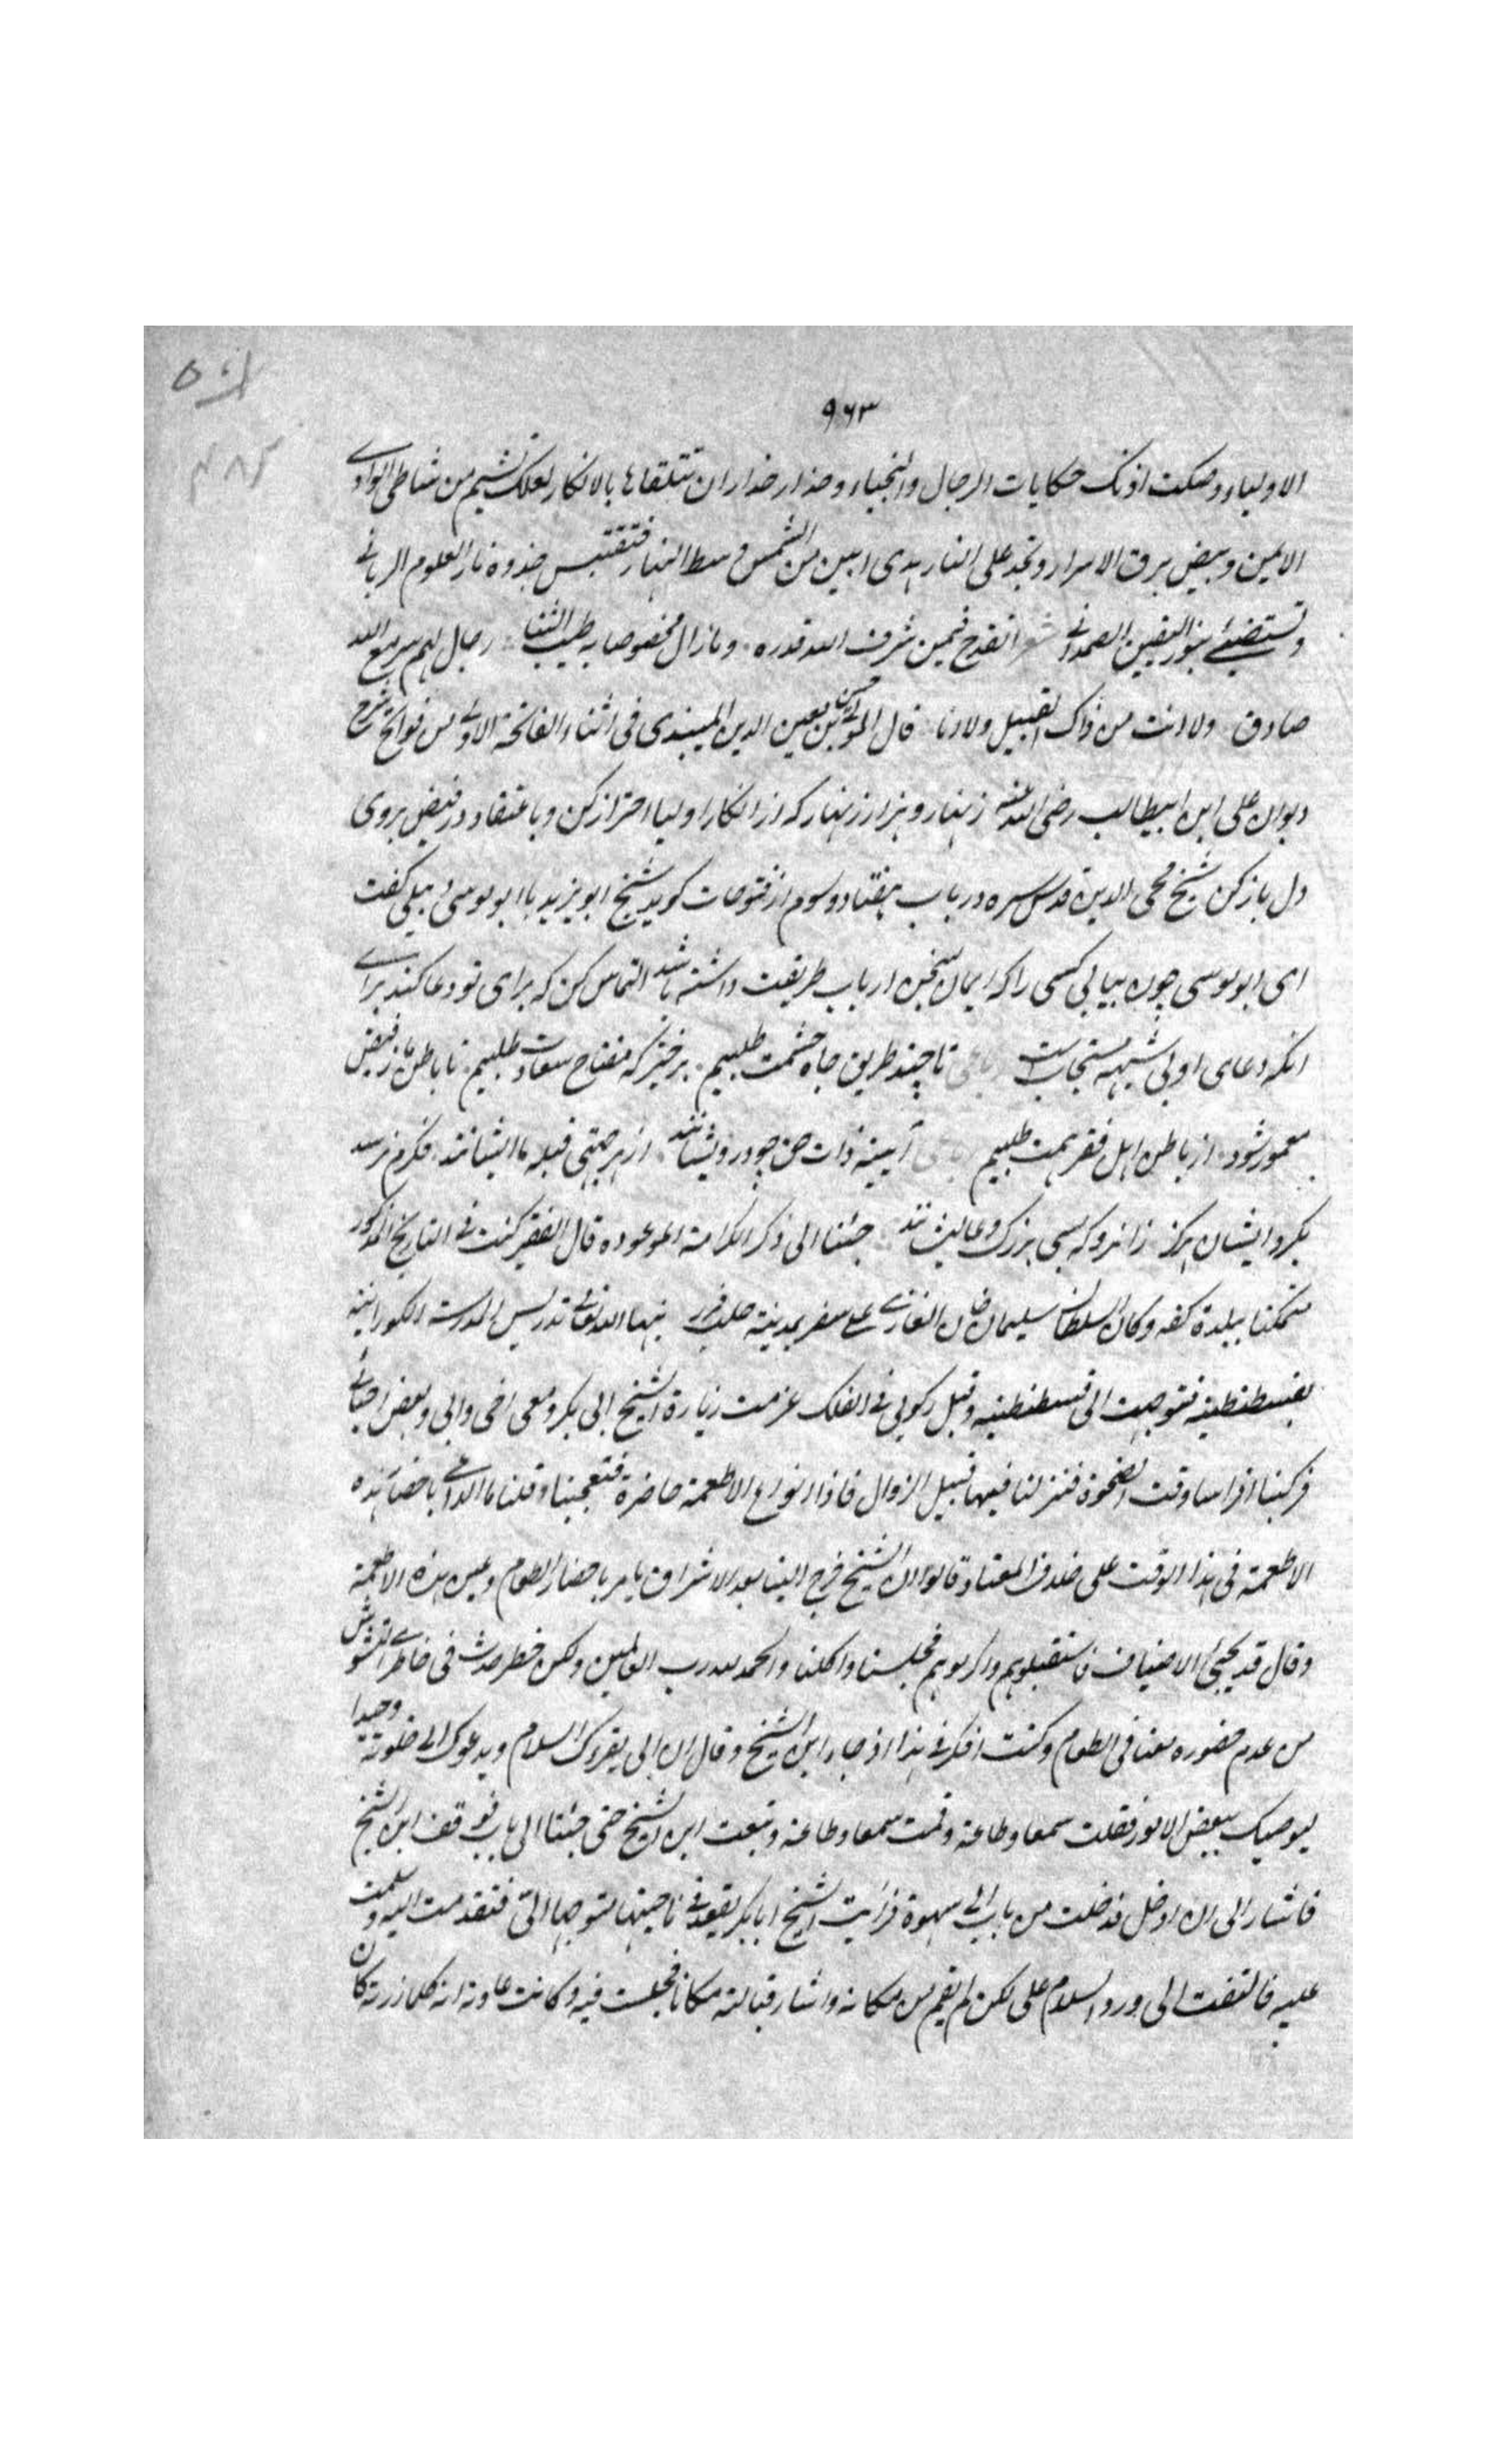 ٩٦٣
الاولیاء وصکت اذنک حکایات الرجال والنجباء وحذار حذار ان تتلقاها بالانکار لعلک تشیم من شاطئ الوادے
الایمن ومیض برق الاسرار وتجد علی النار هدی ابین من الشمس وسط النهار فتقتبس جذوه نار العلوم الربانے
وتستضیئ بنور الیقین الصمدانے شعر اتقدح فیمن شرف الله قدره وما زال مخصوصا به طیب الثنا رجال لهم سر مع الله
صادق ولا انت من ذاک القبیل ولا انا قال المولی حسین بن معین الدین المیبدی فی اثناء الفاتحة الاولے من فواتح شرح
دیوان علی ابن ابیطالب رضی الله عنه زنهار و هزار زنهار که از انکار اولیا احتراز کن و باعتقاد در فیض بروی
دل باز کن شیخ محی الدین قدس سره در باب هفتاد و سوم از فتوحات کوید شیخ ابو یزید با ابو موسی دبیلی کفت
ای ابو موسی چون بیابی کسی را که ایمان بسخن ارباب طریقت داشته باشد التماس کن که برای تو دعا کند براے
انکه دعای او بی شبهه مستجابست رباعی تا چند طریق جاه حشمت طلبیم برخیز که مفتاح سعادت طلبیم تا باطن ما ز فیض
معمور شود از باطن اهل فقر همت طلبیم رباعی آیینه ذات حق چو درویشانند از هر جهتی قبله ما ایشانند فکرم نرسد
بکرد ایشان هرکز زانرو که بسی بزرک و عالیشانند جئنا الی ذکر الکرامة الموعوده قال الفقیر کنت فے التاریخ المذکور
متمکنا ببلدة کفه وکان السلطان سلیمان خان الغازے علے سفر بمدینة حلب الله تعالے تدریس المدرسة
بقسطنطینة فتوجهت الی قسطنطنیه وقبل رکوبی فے الفلک عزمت زیارة الشیخ ابی بکر ومعی اخی وابی وبعض احبائے
فرکبنا افراسا وقت الضحوة فنزلنا فیها قبیل الزوال فاذا انواع الاطعمة حاضرة فتعجبنا وقلنا ما الداعے باحضار هذه
الاطعمة فی هذا الوقت علی خلاف المعتاد قالوا ان الشیخ خرج الینا بعد الاشراق یامر باحضار الطعام وعین هذه الاطعمة
وقال قد یجیئ الاضیاف فاستقبلوهم واکرموهم فجلسنا واکلنا والحمد لله رب العالمین ولکن خطر حدث فی خاطرے التشویش
من عدم حضوره معنا فی الطعام وکنت افکر فے هذا اذ جاء ابن الشیخ وقال ان ابی یقرؤک السلام ویدعوک الے خلوته وحیدا
لیوصیک ببعض الامور فقلت سمعا وطاعة وقمت سمعا وطاعة وتبعت ابن الشیخ حتی جئنا الی باب فوقف ابن الشیخ
فاشار الی ان ادخل فدخلت من باب الے سهوة فرأیت الشیخ ابا بکر یقعد فے ناحیتها متوجها الیّ فتقدمت الیه وسلمت
علیه فالتفت الی ورد السلام علی لکن لم یقم من مکانه واشار قبالته مکانا فجلست فیه وکانت عادته انه کلما زرته کان